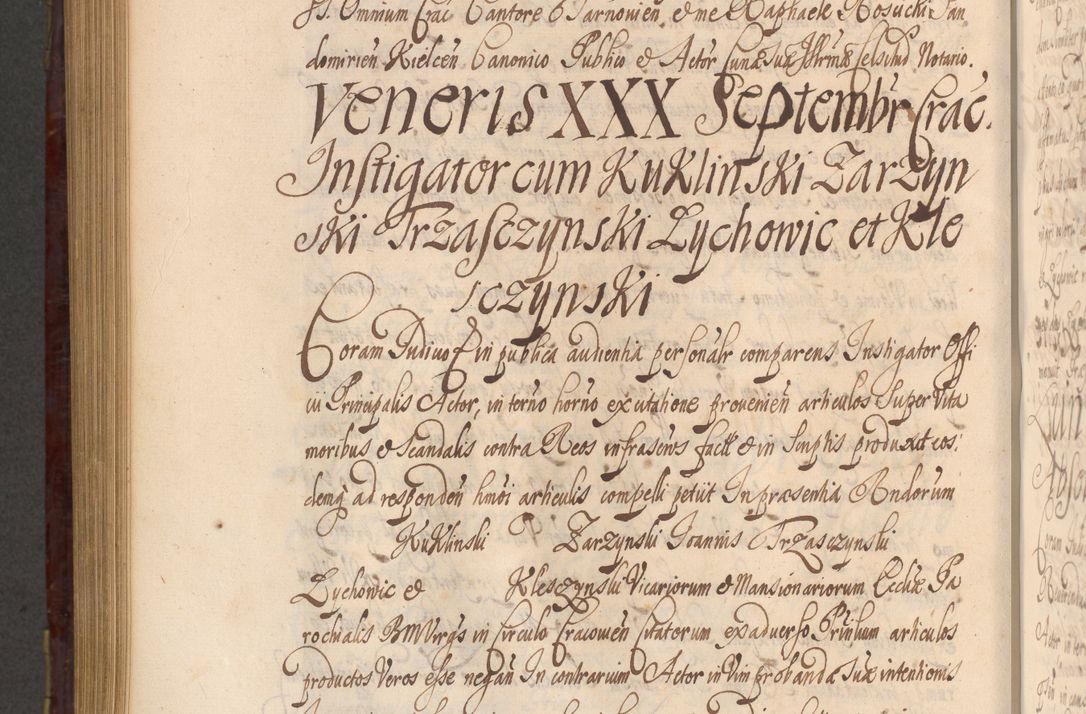 SS. Omnium Crac Cantore Tarnovien et me Raphaele Kosucki San
domirien Kielcen Canonico Publico et Actor Curiæ Suæ Illrmæ Celsitud Notario.
Veneris XXX Septembr Crac.
Instigator cum Kuklinski Zarzyn
ski Trzasczynski Lychowic et Kle
sczynski
Coram Judicio in publica audientia personalr comparens Instigator Offi
cii Principalis Actor, in termo horno ex citatione provenien articulos Super Vita
moribus et Scandalis contra Reos infrascros facit et in Scriptis produxit eos
demq ad responden hmoi articulis compelli petiit In præsentia Rndorum
Kuklinski Zarzynski Joannis Trzasczynski
Lychowic et Klesczynski Vicariorum et Mansionariorum Ecclæ Pa
rochialis BMVirgs in Circulo Cracovien Citatorum ex adverso Prmum articulos
productos Veros esse negan In contrarium Actor in Vim probandæ Suæ intentionis